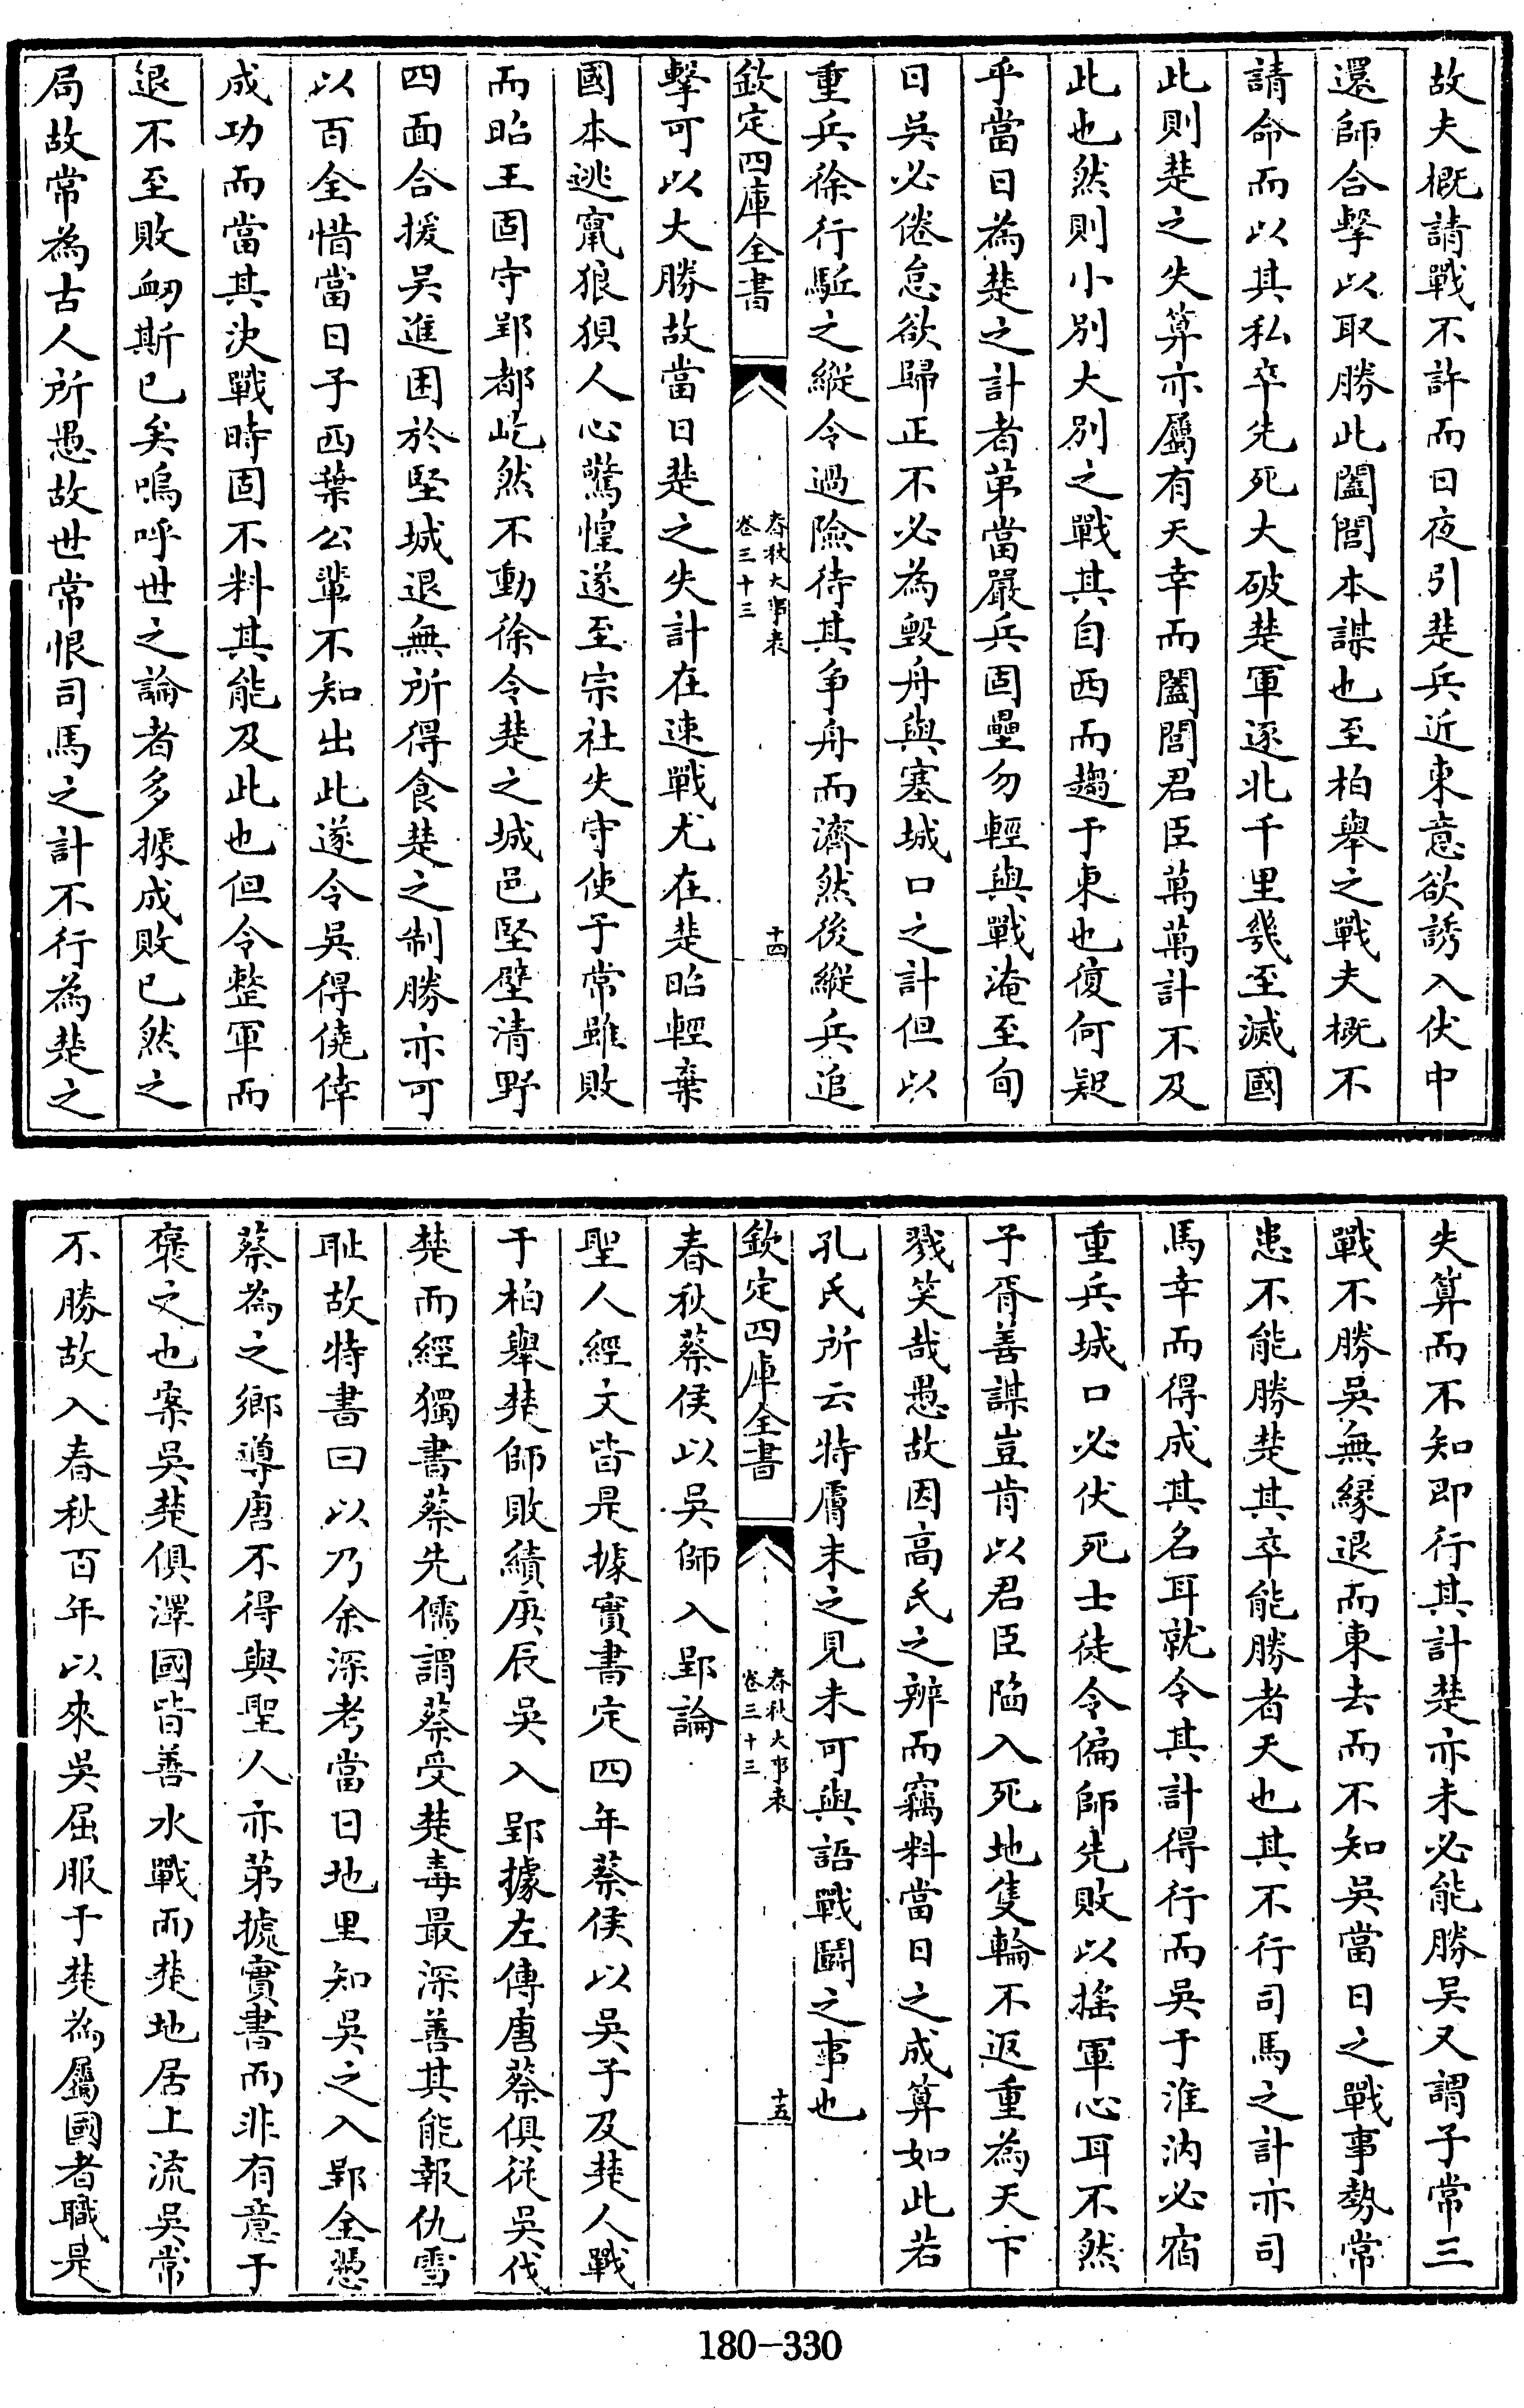 故夫概請戰不許而日夜引楚兵近東意欲誘入伏中
還師合擊以取勝此闔閭本謀也至柏舉之戰夫概不
請命而以其私卒先死大破楚軍逐北千里幾至滅國
此則楚之失算亦屬有天幸而闔閭君臣萬萬計不及
此也然則小別大別之戰其自西而趨于東也復何疑
乎當日為楚之計者第當嚴兵固壘勿輕與戰淹至旬
日吳必倦怠欲歸正不必為毀舟與塞城口之計但以
重兵徐行駈之縱令過險待其爭舟而濟然後縱兵追
欽定四庫全書
春秋大事表
卷三十三
十四
擊可以大勝故當日楚之失計在速戰尤在楚昭輕棄
國本逃竄狼狽人心驚惶遂至宗社失守使子常雖敗
而昭王固守郢都屹然不動徐令楚之城邑堅壁清野
四面合援吳進困於堅城退無所得食楚之制勝亦可
以百全惜當日子西葉公輩不知出此遂令吳得僥倖
成功而當其決戰時固不料其能及此也但令整軍而
退不至敗衂斯已矣嗚呼世之論者多據成敗已然之
局故常為古人所愚故世常恨司馬之計不行為楚之
失算而不知即行其計楚亦未必能勝吳又謂子常三
戰不勝吳無緣退而東去而不知吳當日之戰事勢常
患不能勝楚其卒能勝者天也其不行司馬之計亦司
馬幸而得成其名耳就令其計得行而吳于淮汭必宿
重兵城口必伏死士徒令偏師先敗以搖軍心耳不然
子胥善謀豈肯以君臣陷入死地隻輪不返重為天下
戮笑哉愚故因高氏之辨而竊料當日之成算如此若
孔氏所云特膚末之見未可與語戰鬭之事也
欽定四庫全書
春秋大事表
卷三十三
十五
春秋蔡侯以吳師入郢論
聖人經文皆是據實書定四年蔡侯以吳子及楚人戰
于柏舉楚師敗績庚辰吳入郢據左傳唐蔡俱從吳伐
楚而經獨書蔡先儒謂蔡受楚毒最深善其能報仇雪
恥故特書曰以乃余深考當日地里知吳之入郢全憑
蔡為之鄉導唐不得與聖人亦第據實書而非有意于
褒之也案吳楚俱澤國皆善水戰而楚地居上流吳常
不勝故入春秋百年以來吳屈服于楚為屬國者職是
180-330